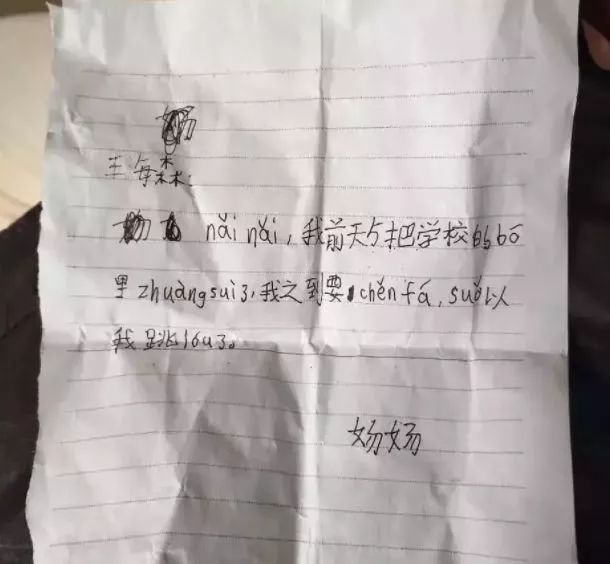 王每森:
nǎi nǎi,我前天与把学校的bō
里zhuàngsuì3,我之到要chěnfá,suǒ以
我跳lóu3。
妢妢